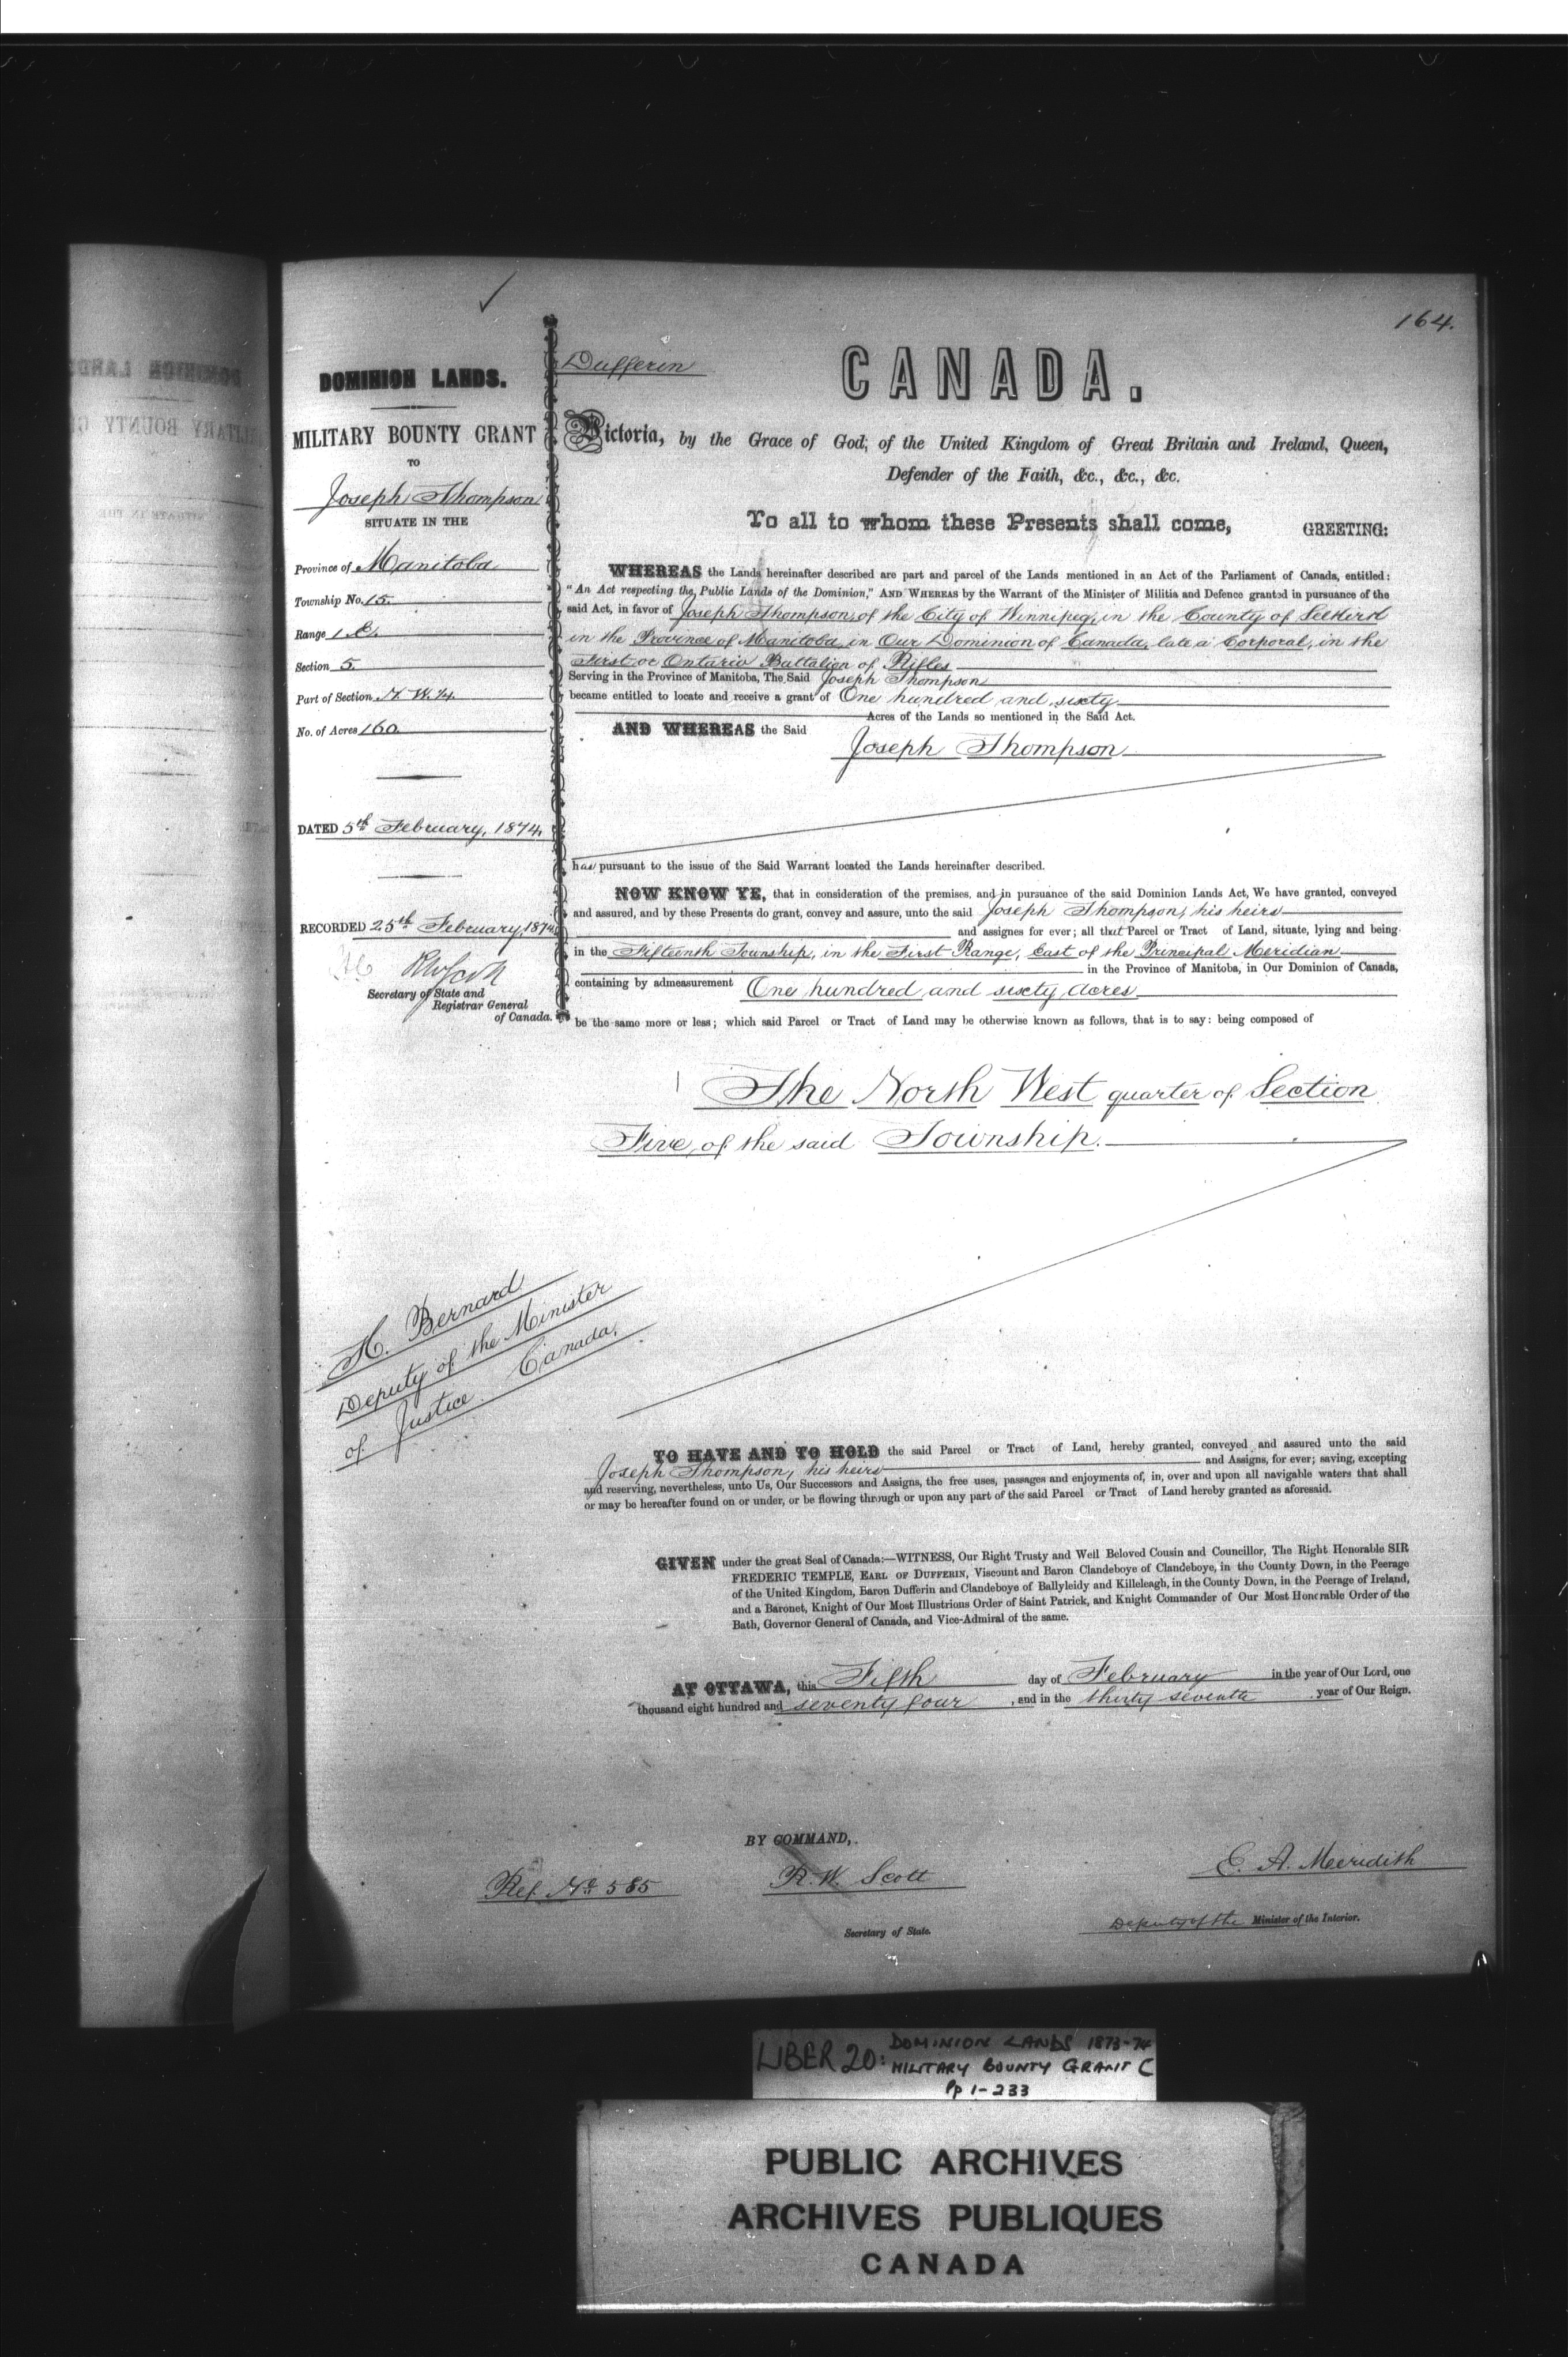 164.
DOMINION LANDS.
MILITARY BOUNTY GRANT
TO
Joseph Thompson
SITUATE IN THE
Province of Manitoba
Township No. 15.
Range 1 E.
Section 5.
Part of Section N. W. 1/4.
No. of Acres 160.
DATED 5th February, 1874.
RECORDED 25th February, 1874
RWScott
Secretary of State and
Registrar General
of Canada.
Dufferin
CANADA.
Victoria, by the Grace of God; of the United Kingdom of Great Britain and Ireland, Queen,
Defender of the Faith, &c., &c., &c.
To all to whom these Presents shall come, GREETING:
WHEREAS the Lands hereinafter described are part and parcel of the Lands mentioned in an Act of the Parliament of Canada, entitled:
"An Act respecting the Public Lands of the Dominion," AND WHEREAS by the Warrant of the Minister of Militia and Defence granted in pursuance of the
said Act, in favor of Joseph Thompson, of the City of Winnipeg, in the County of Selkirk
in the Province of Manitoba, in Our Dominion of Canada, late a Corporal, in the
First or Ontario Battalion of Rifles
Serving in the Province of Manitoba, The Said Joseph Thompson
became entitled to locate and receive a grant of One hundred and sixty
Acres of the Lands so mentioned in the Said Act.
AND WHEREAS the Said Joseph Thompson
has pursuant to the issue of the Said Warrant located the Lands hereinafter described.
NOW KNOW YE, that in consideration of the premises, and in pursuance of the said Dominion Lands Act, We have granted, conveyed
and assured, and by these Presents do grant, convey and assure, unto the said Joseph Thompson, his heirs
and assignes for ever; all that Parcel or Tract of Land, situate, lying and being
in the Fifteenth Township, in the First Range, East of the Principal Meridian
in the Province of Manitoba, in Our Dominion of Canada,
containing by admeasurement One hundred and sixty acres
be the same more or less; which said Parcel or Tract of Land may be otherwise known as follows, that is to say: being composed of
The North West quarter of Section
Five, of the said Township.
H. Bernard
Deputy of the Minister
of Justice Canada.
TO HAVE AND TO HOLD the said Parcel or Tract of Land, hereby granted, conveyed and assured unto the said
Joseph Thompson, his heirs and Assigns, for ever; saving, excepting
and reserving, nevertheless, unto Us, Our Successors and Assigns, the free uses, passages and enjoyments of, in, over and upon all navigable waters that shall
or may be hereafter found on or under, or be flowing through or upon any part of the said Parcel or Tract of Land hereby granted as aforesaid.
GIVEN under the great Seal of Canada:—WITNESS, Our Right Trusty and Well Beloved Cousin and Councillor, The Right Honorable SIR
FREDERIC TEMPLE, EARL OF DUFFERIN, Viscount and Baron Clandeboye of Clandeboye, in the County Down, in the Peerage
of the United Kingdom, Baron Dufferin and Clandeboye of Ballyleidy and Killeleagh, in the County Down, in the Peerage of Ireland,
and a Baronet, Knight of Our Most Illustrious Order of Saint Patrick, and Knight Commander of Our Most Honorable Order of the
Bath, Governor General of Canada, and Vice-Admiral of the same.
AT OTTAWA, this Fifth day of February in the year of Our Lord, one
thousand eight hundred and seventy four, and in the thirty seventh year of Our Reign.
BY COMMAND,
Ref. No 585
R. W. Scott
Secretary of State.
E. A. Meredith
Deputy of the Minister of the Interior.
LIBER 20: DOMINION LANDS 1873-74
MILITARY BOUNTY GRANT C
Pp 1-233
PUBLIC ARCHIVES
ARCHIVES PUBLIQUES
CANADA